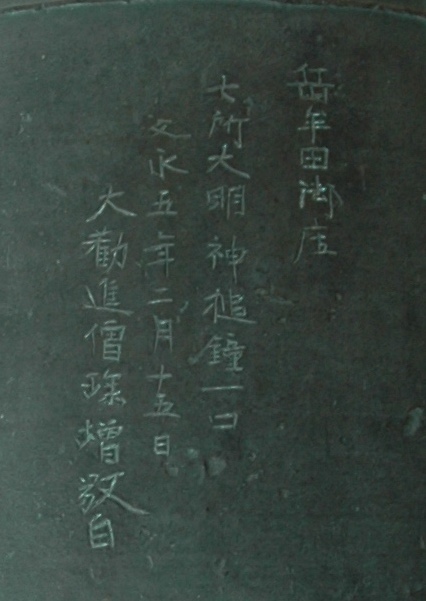 岳牟田御庄
七所大明神槌鐘一口
文永五年二月十五日
大勧進僧琢増敬白